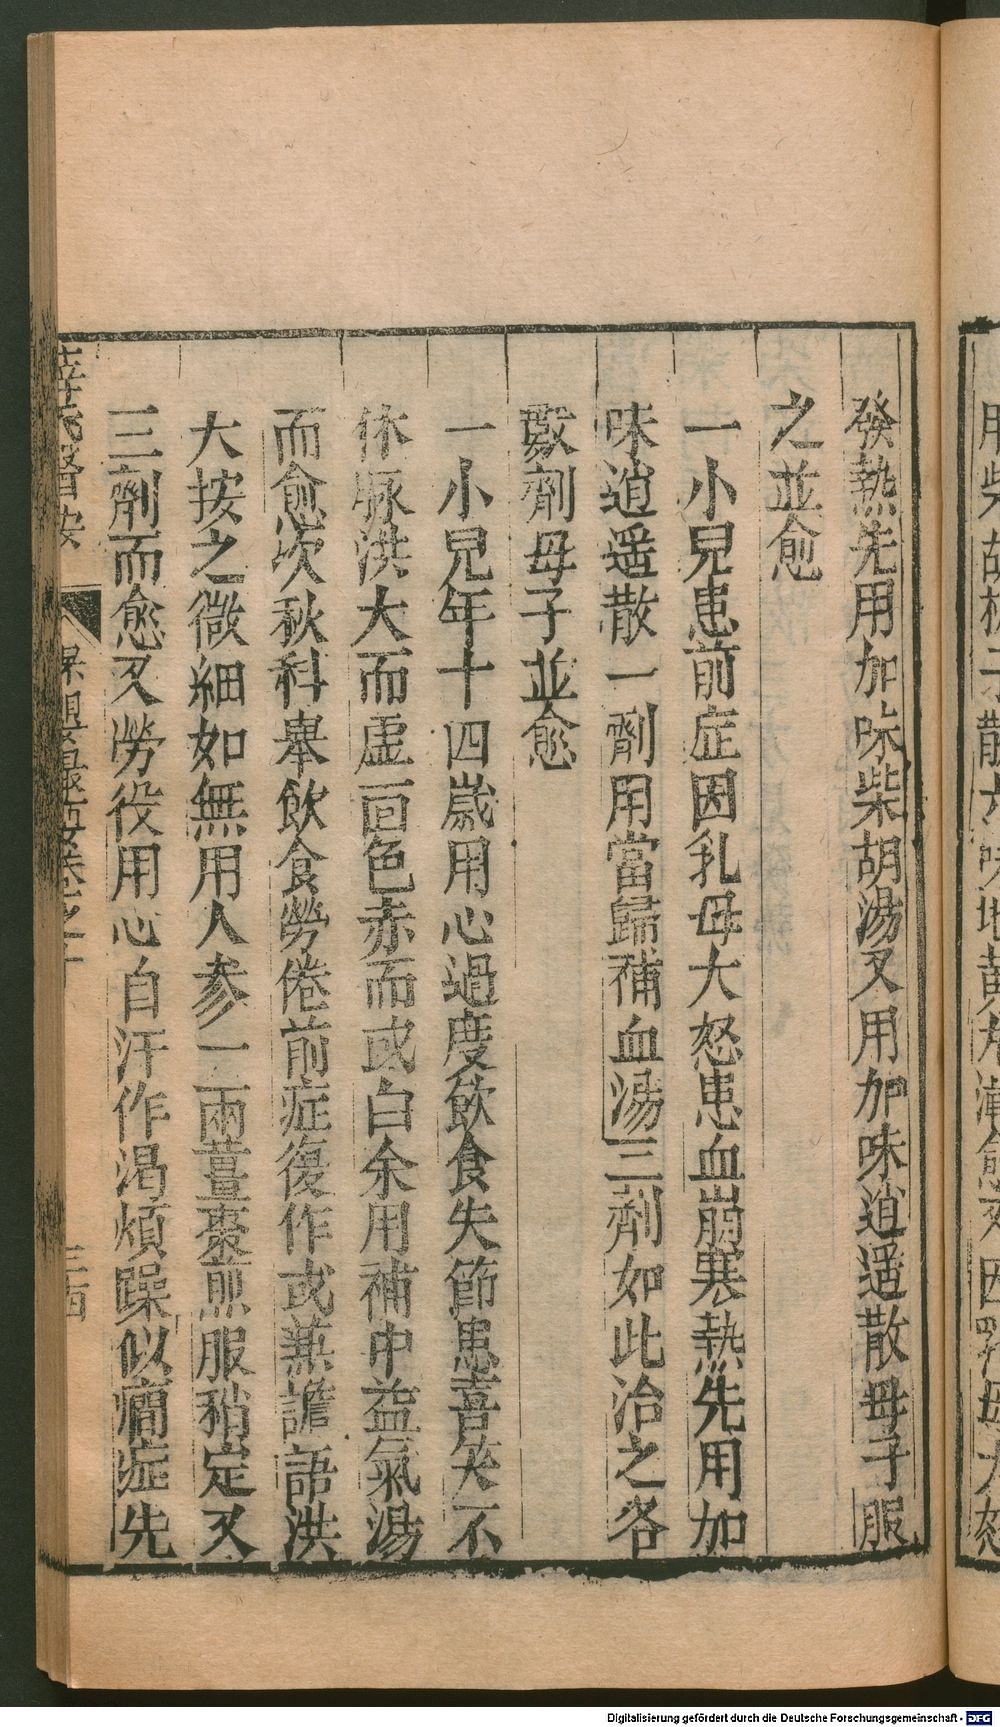 發熱先用加味柴胡湯又用加味逍遥散母子服
之並愈
一小兒患前症因乳母大怒患血崩寒熱先用加
味逍遥散一劑用當歸補血湯三劑如此治之各
數劑母子並愈
一小兒年十四歲用心過度飲食失節患喜笑不
休脉洪大而虛面色赤而或白余用補中益氣湯
而愈次秋科舉飲食勞倦前症復作或兼譫語洪
大按之微細如無用人參一兩薑棗煎服稍定又
三劑而愈又勞役用心自汗作渴煩躁似癇症先
薛氏醫按
保嬰撮要卷之十
三西
用柴胡梔子散六味地黃丸漸愈又因乳母大怒
Digitalisierung gefördert durch die Deutsche Forschungsgemeinschaft - DFG